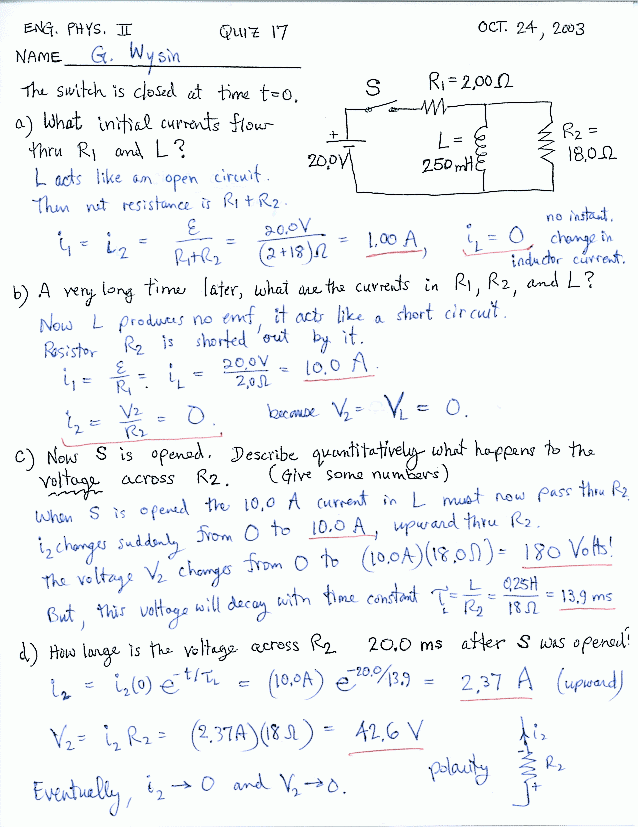 ENG. PHYS. II QUIZ 17 OCT. 24, 2003
NAME G. Wysin
The switch is closed at time t=0.
S R₁ = 2,00 Ω
+
20,0V
L = 250 mH
R₂ = 18,0 Ω
a) What initial currents flow
thru R₁ and L?
L acts like an open circuit.
Then net resistance is R₁ + R₂.
i₁ = i₂ = ℰ/(R₁+R₂) = 20,0V/((2+18)Ω) = 1,00 A, i_L = 0, no instant. change in inductor current.
b) A very long time later, what are the currents in R₁, R₂, and L?
Now L produces no emf, it acts like a short circuit.
Resistor R₂ is shorted out by it.
i₁ = ℰ/R₁ = i_L = 20,0V/2,0Ω = 10,0 A.
i₂ = V₂/R₂ = 0. because V₂ = V_L = 0.
c) Now S is opened. Describe quantitatively what happens to the
voltage across R₂. (Give some numbers)
When S is opened the 10,0 A current in L must now pass thru R₂.
i₂ changes suddenly from 0 to 10,0 A, upward thru R₂.
The voltage V₂ changes from 0 to (10,0A)(18,0Ω) = 180 Volts!
But, this voltage will decay with time constant τ_L = L/R₂ = 0,25H/18Ω = 13,9 ms
d) How large is the voltage across R₂ 20.0 ms after S was opened?
i₂ = i₂(0) e^(-t/τ_L) = (10,0A) e^(-20.0/13.9) = 2,37 A (upward)
V₂ = i₂ R₂ = (2,37A)(18Ω) = 42,6 V
polarity - i₂ R₂ +
Eventually, i₂ → 0 and V₂ → 0.